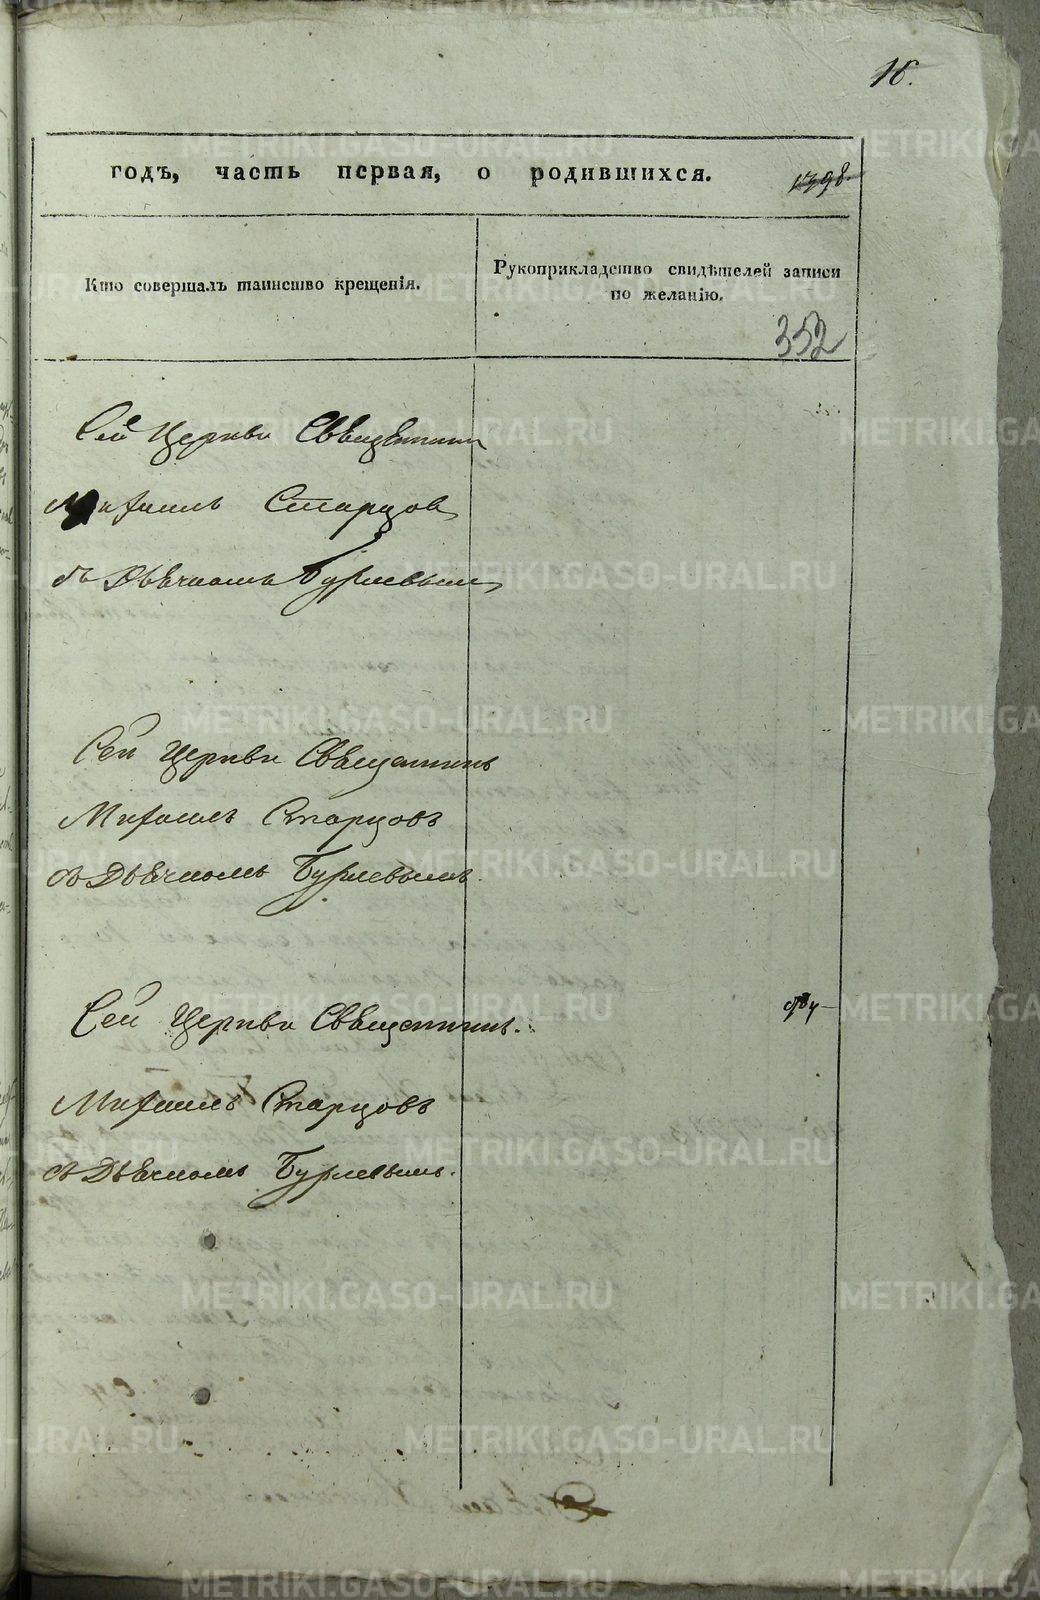 16.
годъ, часть первая, о родившихся.
1398.
Кто совершалъ таинство крещенія.
Рукоприкладство свидѣтелей записи
по желанію.
352
Сей Церкви Священник
Михаилъ Старцов
съ Дьячкомъ Бурлевым
Сей Церкви Священникъ
Михаилъ Старцовъ
съ Дьячкомъ Бурлевымъ.
Сей Церкви Священникъ.
Михаилъ Старцовъ
съ Дьячкомъ Бурлевымъ.
METRIKI.GASO-URAL.RU